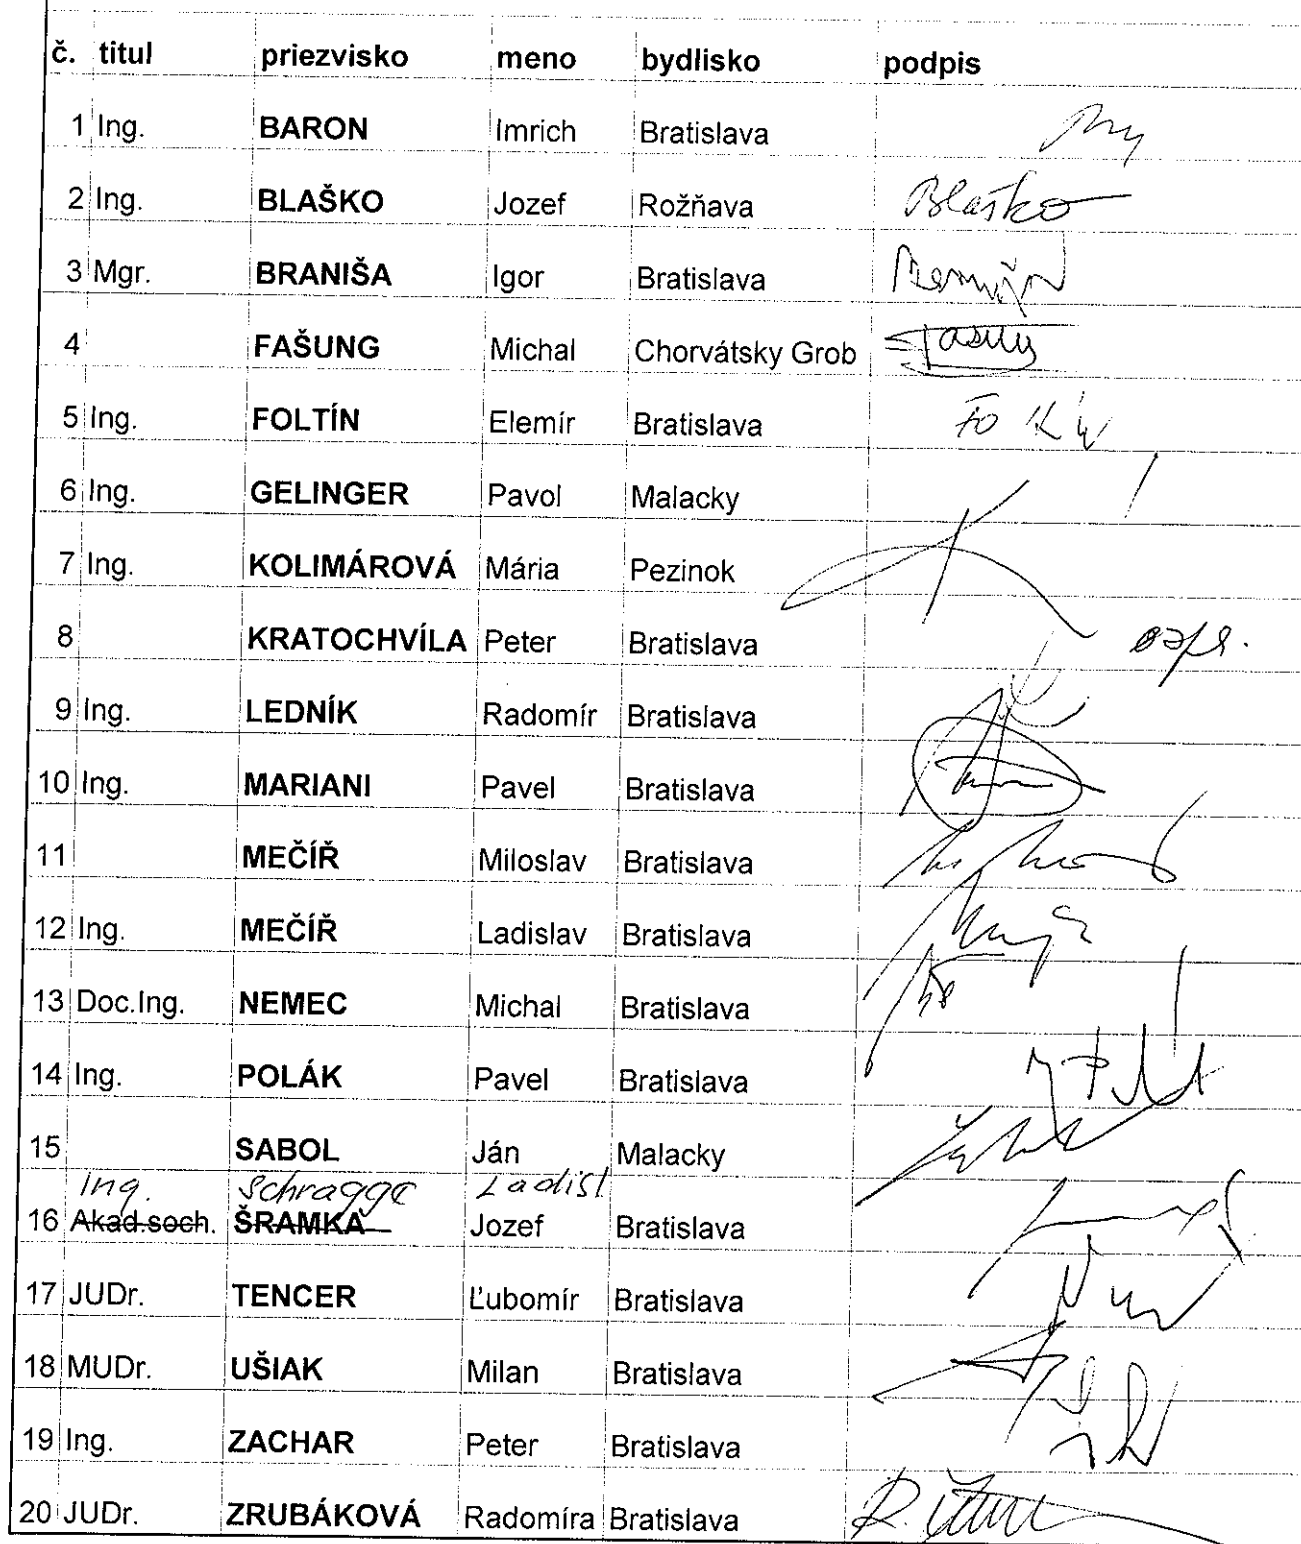 č. titul priezvisko meno bydlisko podpis
1 Ing. BARON Imrich Bratislava
2 Ing. BLAŠKO Jozef Rožňava Blaško
3 Mgr. BRANIŠA Igor Bratislava
4 FAŠUNG Michal Chorvátsky Grob
5 Ing. FOLTÍN Elemír Bratislava
6 Ing. GELINGER Pavol Malacky
7 Ing. KOLIMÁROVÁ Mária Pezinok
8 KRATOCHVÍLA Peter Bratislava
9 Ing. LEDNÍK Radomír Bratislava
10 Ing. MARIANI Pavel Bratislava
11 MEČÍŘ Miloslav Bratislava
12 Ing. MEČÍŘ Ladislav Bratislava
13 Doc.Ing. NEMEC Michal Bratislava
14 Ing. POLÁK Pavel Bratislava
15 SABOL Ján Malacky
Ing. Schragge Ladisl.
16 Akad.soch. ŠRAMKA Jozef Bratislava
17 JUDr. TENCER Ľubomír Bratislava
18 MUDr. UŠIAK Milan Bratislava
19 Ing. ZACHAR Peter Bratislava
20 JUDr. ZRUBÁKOVÁ Radomíra Bratislava